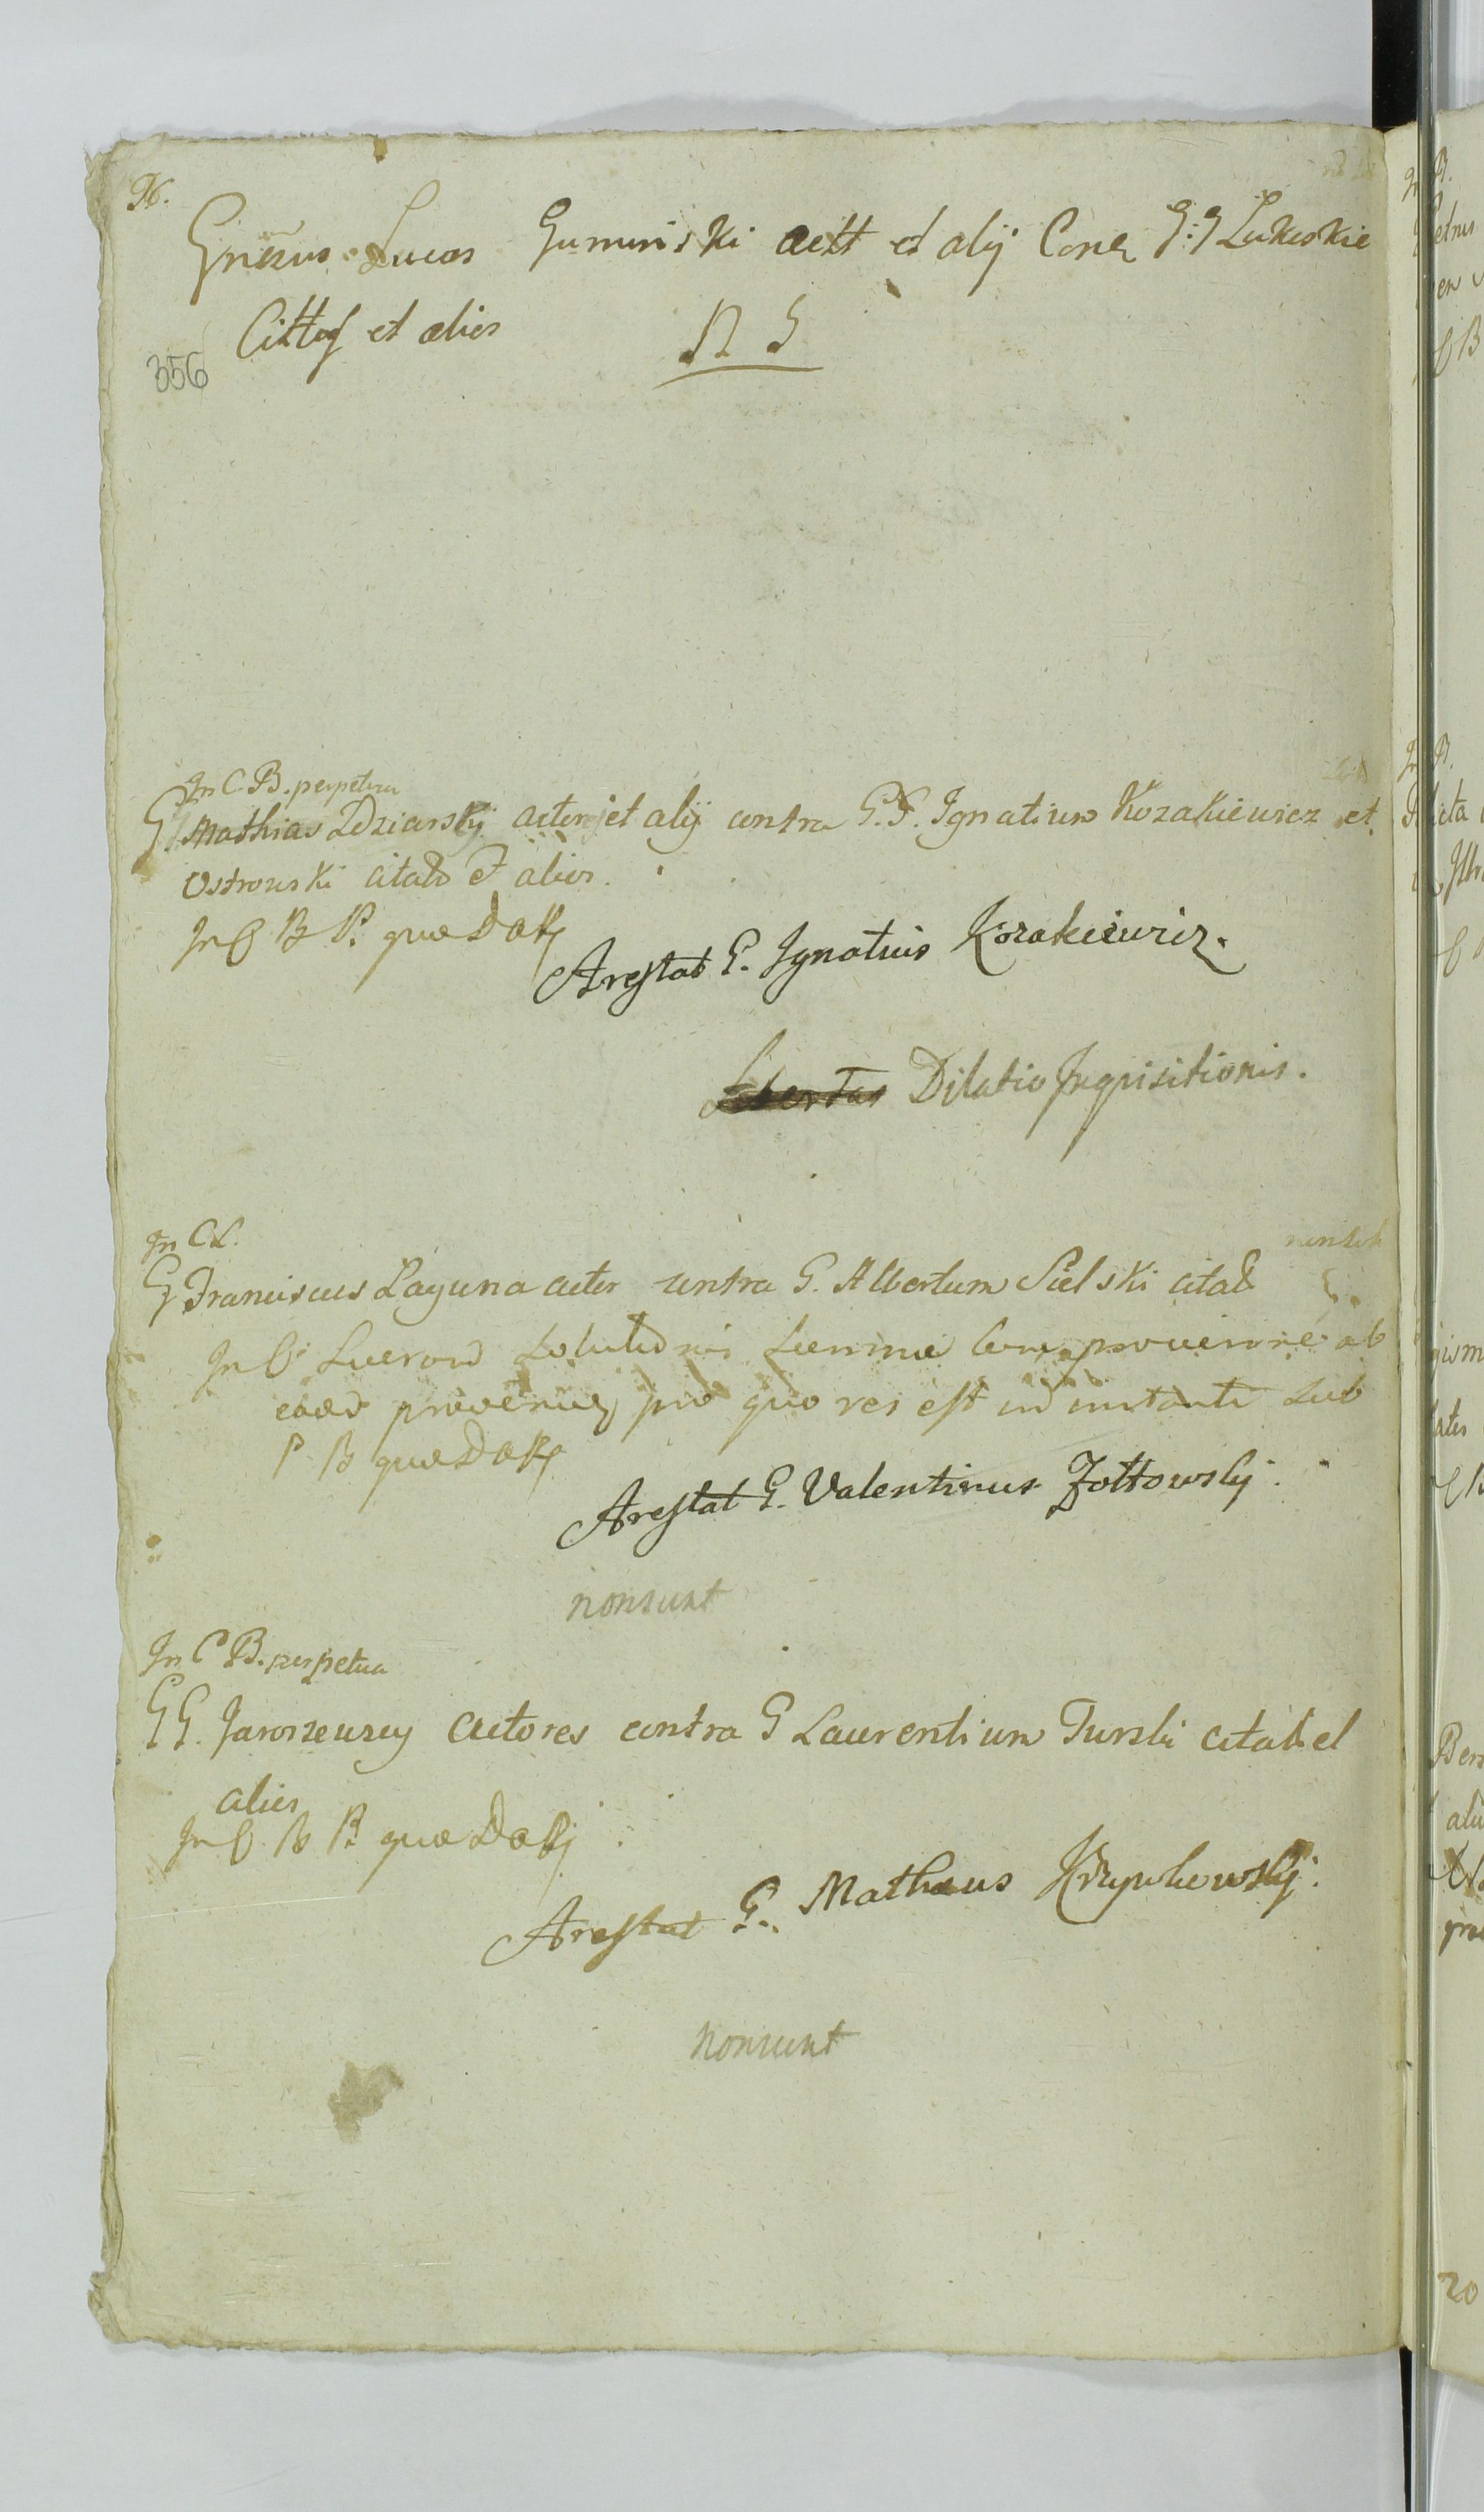 Gnesus Lucas Guminski actt et alij Cone G:G Lukoskie
Cittos et alios N S
356
In C B. perpetua
G Mathias Zdziarskij actores et alij contra G. G. Ignatium Kozakiewicz et
Ostrowski citatd et alios.
In C B P. quadam
Arestat G. Ignatius Kozakiewicz.
Libertas Dilatio Inquisitionis.
In CL.
G Franciscus Laguna actor contra G. Albertum Sielski citatd
In C
pro quo res est in instanti sub
P B quadam
Arestat G. Valentinus Zołtowskj.
nonsunt
In C B. perpetua
GG. Jaroszewscy actores contra G Laurentium Turski citatd et
alios
In C B P. quadam
Arestat G. Mathæus Krzywkowskij.
nonsunt